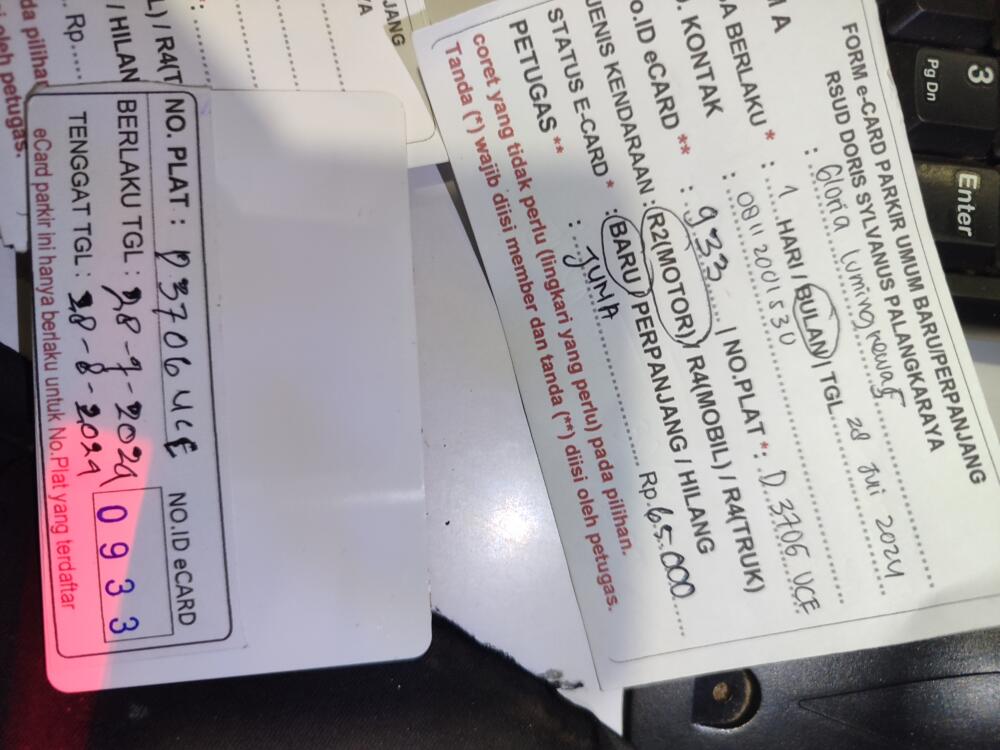 FORM e-CARD PARKIR UMUM BARU/PERPANJANG
RSUD DORIS SYLVANUS PALANGKARAYA
M A : Gloria Lumingkewas
A BERLAKU * : 1 HARI / BULAN / TGL. 28 Jui 2024
. KONTAK : 08112001530
o.ID eCARD ** : 933 / NO.PLAT *: D 3706 UCF
JENIS KENDARAAN : R2(MOTOR) / R4(MOBIL) / R4(TRUK)
STATUS E-CARD * : BARU / PERPANJANG / HILANG
PETUGAS ** : JUMA Rp. 65.000
coret yang tidak perlu (lingkari yang perlu) pada pilihan.
Tanda (*) wajib diisi member dan tanda (**) diisi oleh petugas.
NO. PLAT : D 3706 UCE NO.ID eCARD
BERLAKU TGL : 28-7-2024 0933
TENGGAT TGL : 28-8-2024
eCard parkir ini hanya berlaku untuk No.Plat yang terdaftar
JANG
YA
L) / R4(T
/ HILAN
Rp
da pilihan
i oleh petugas.
3
Pg Dn
Enter